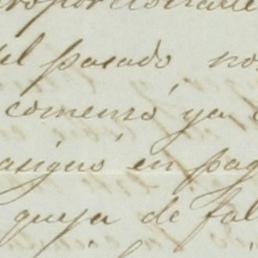 el pasado no
comenzó ya
asignó en pag
queja de fal